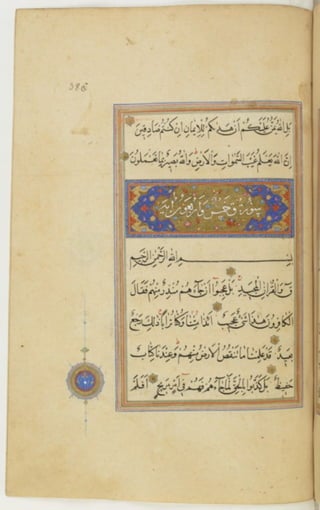 بَلِ اللهُ يَمُنُّ عَلَيْكُمْ أَنْ هَدٰيكُمْ لِلْإِيمَانِ إِنْ كُنْتُمْ صَادِقِينَ
إِنَّ اللهَ يَعْلَمُ غَيْبَ السَّمٰوَاتِ وَالْأَرْضِ وَاللهُ بَصِيرٌ بِمَا تَعْمَلُونَ
سورة ق خمس واربعون اية
بِسْمِ اللهِ الرَّحْمٰنِ الرَّحِيمِ
قٓ وَالْقُرْاٰنِ الْمَجِيدِ بَلْ عَجِبُوا أَنْ جَاءَهُمْ مُنْذِرٌ مِنْهُمْ فَقَالَ
الْكَافِرُونَ هٰذَا شَيْءٌ عَجِيبٌ أَئِذَا مِتْنَا وَكُنَّا تُرَابًا ذٰلِكَ رَجْعٌ
بَعِيدٌ قَدْ عَلِمْنَا مَا تَنْقُصُ الْأَرْضُ مِنْهُمْ وَعِنْدَنَا كِتَابٌ
حَفِيظٌ بَلْ كَذَّبُوا بِالْحَقِّ لَمَّا جَاءَهُمْ فَهُمْ فِي أَمْرٍ مَرِيجٍ أَفَلَمْ